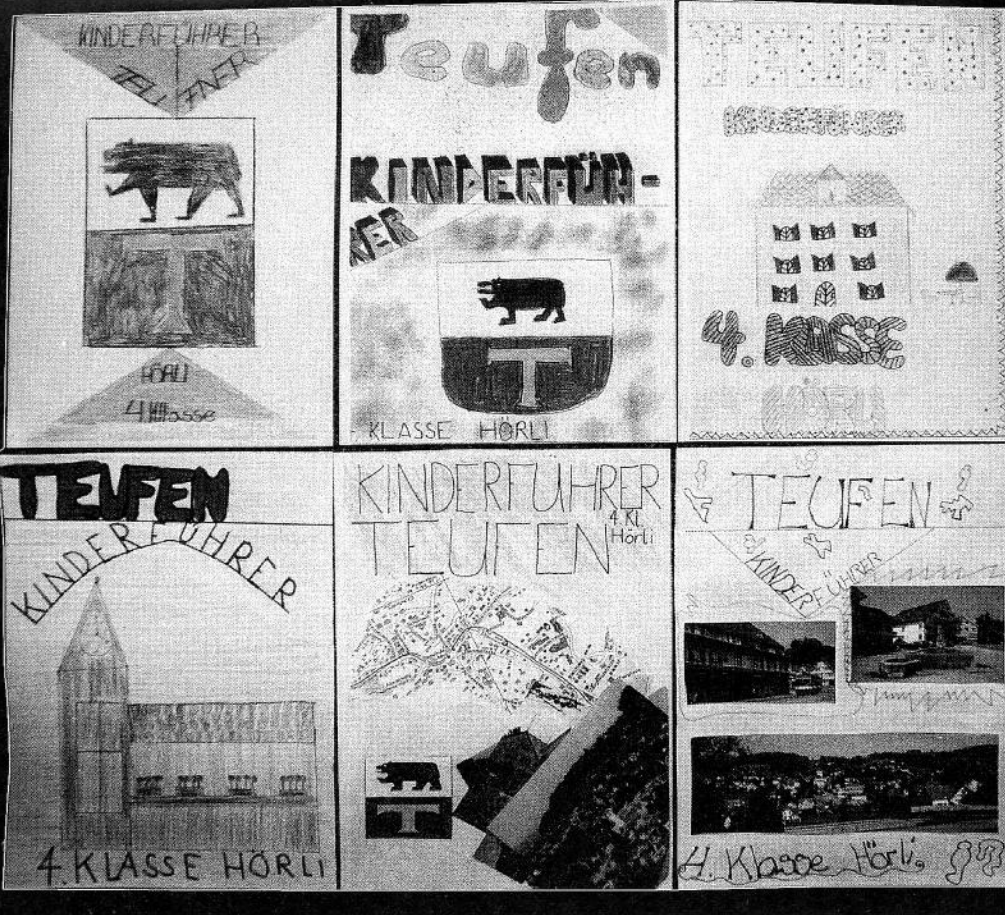 KINDERFÜHRER
TEUFNER
T
HÖRLI
4 Klasse
Teufen
KINDERFÜH-
RER
T
KLASSE HÖRLI
TEUFEN
KINDERFÜHRER
4. KLASSE
HÖRLI
TEUFEN
KINDERFÜHRER
4. KLASSE HÖRLI
KINDERFÜHRER
TEUFEN
4. Kl.
Hörli
T
TEUFEN
KINDERFÜHRER
4. Klasse Hörli.